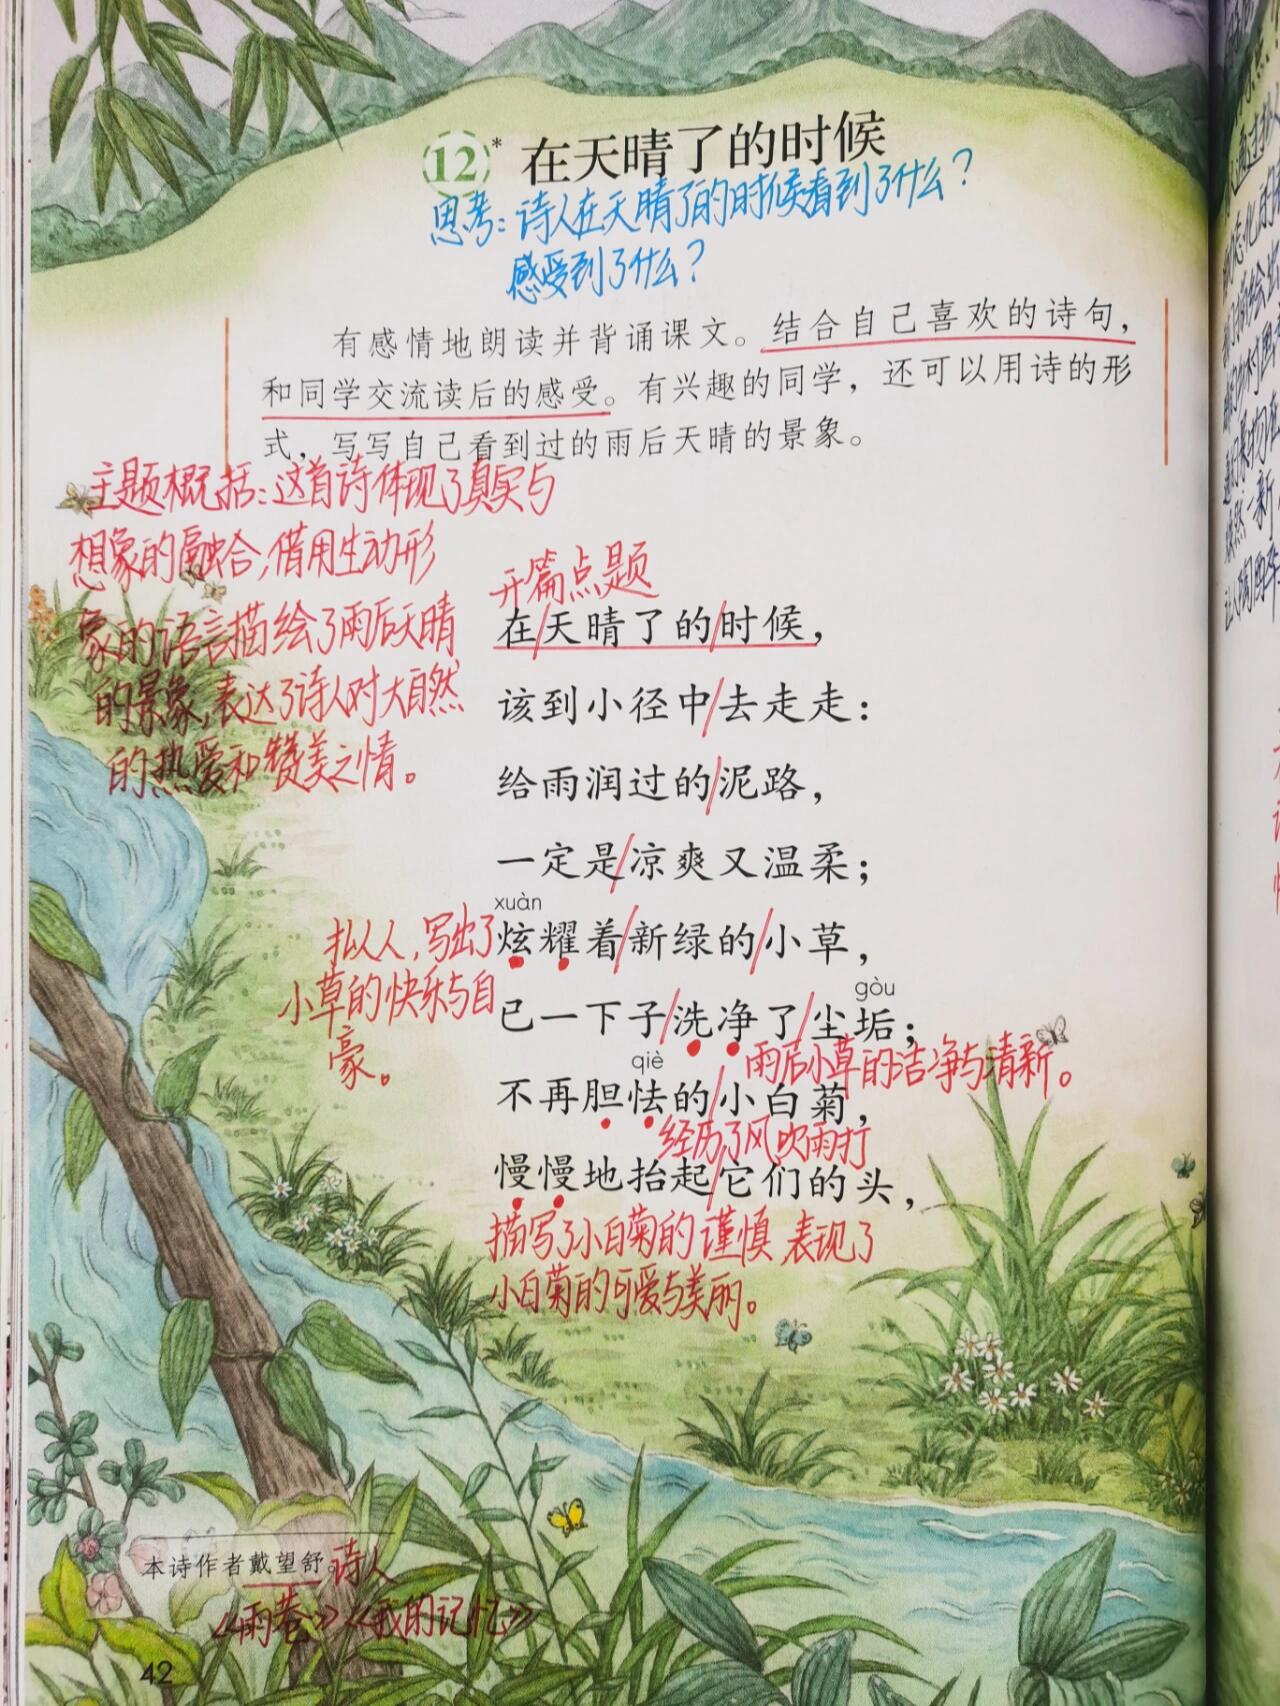 12* 在天晴了的时候
思考：诗人在天晴了的时候看到了什么？
感受到了什么？
有感情地朗读并背诵课文。结合自己喜欢的诗句，
和同学交流读后的感受。有兴趣的同学，还可以用诗的形
式，写写自己看到过的雨后天晴的景象。
主题概括：这首诗体现了真实与
想象的融合，借用生动形
象的语言描绘了雨后天晴
的景象，表达了诗人对大自然
的热爱和赞美之情。
开篇点题
在/天晴了的/时候，
该到小径中/去走走：
给雨润过的/泥路，
一定是/凉爽又温柔；
xuàn
炫耀着/新绿的/小草，
拟人，写出了
小草的快乐与自
豪。
gòu
已一下子/洗净了/尘垢；
雨后小草的洁净与清新。
qiè
不再胆怯的/小白菊，
经历了风吹雨打
慢慢地抬起/它们的头，
描写了小白菊的谨慎，表现了
小白菊的可爱与美丽。
本诗作者戴望舒。诗人
《雨巷》《我的记忆》
42